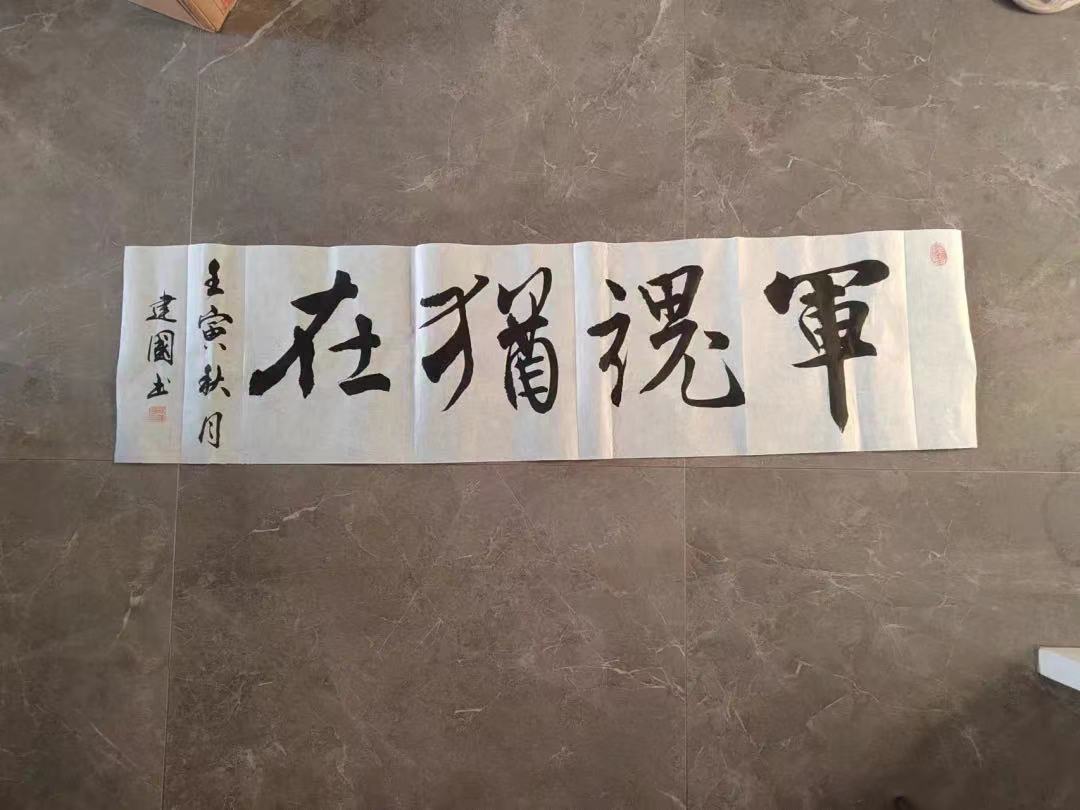 軍魂猶在
壬寅秋月
建國书